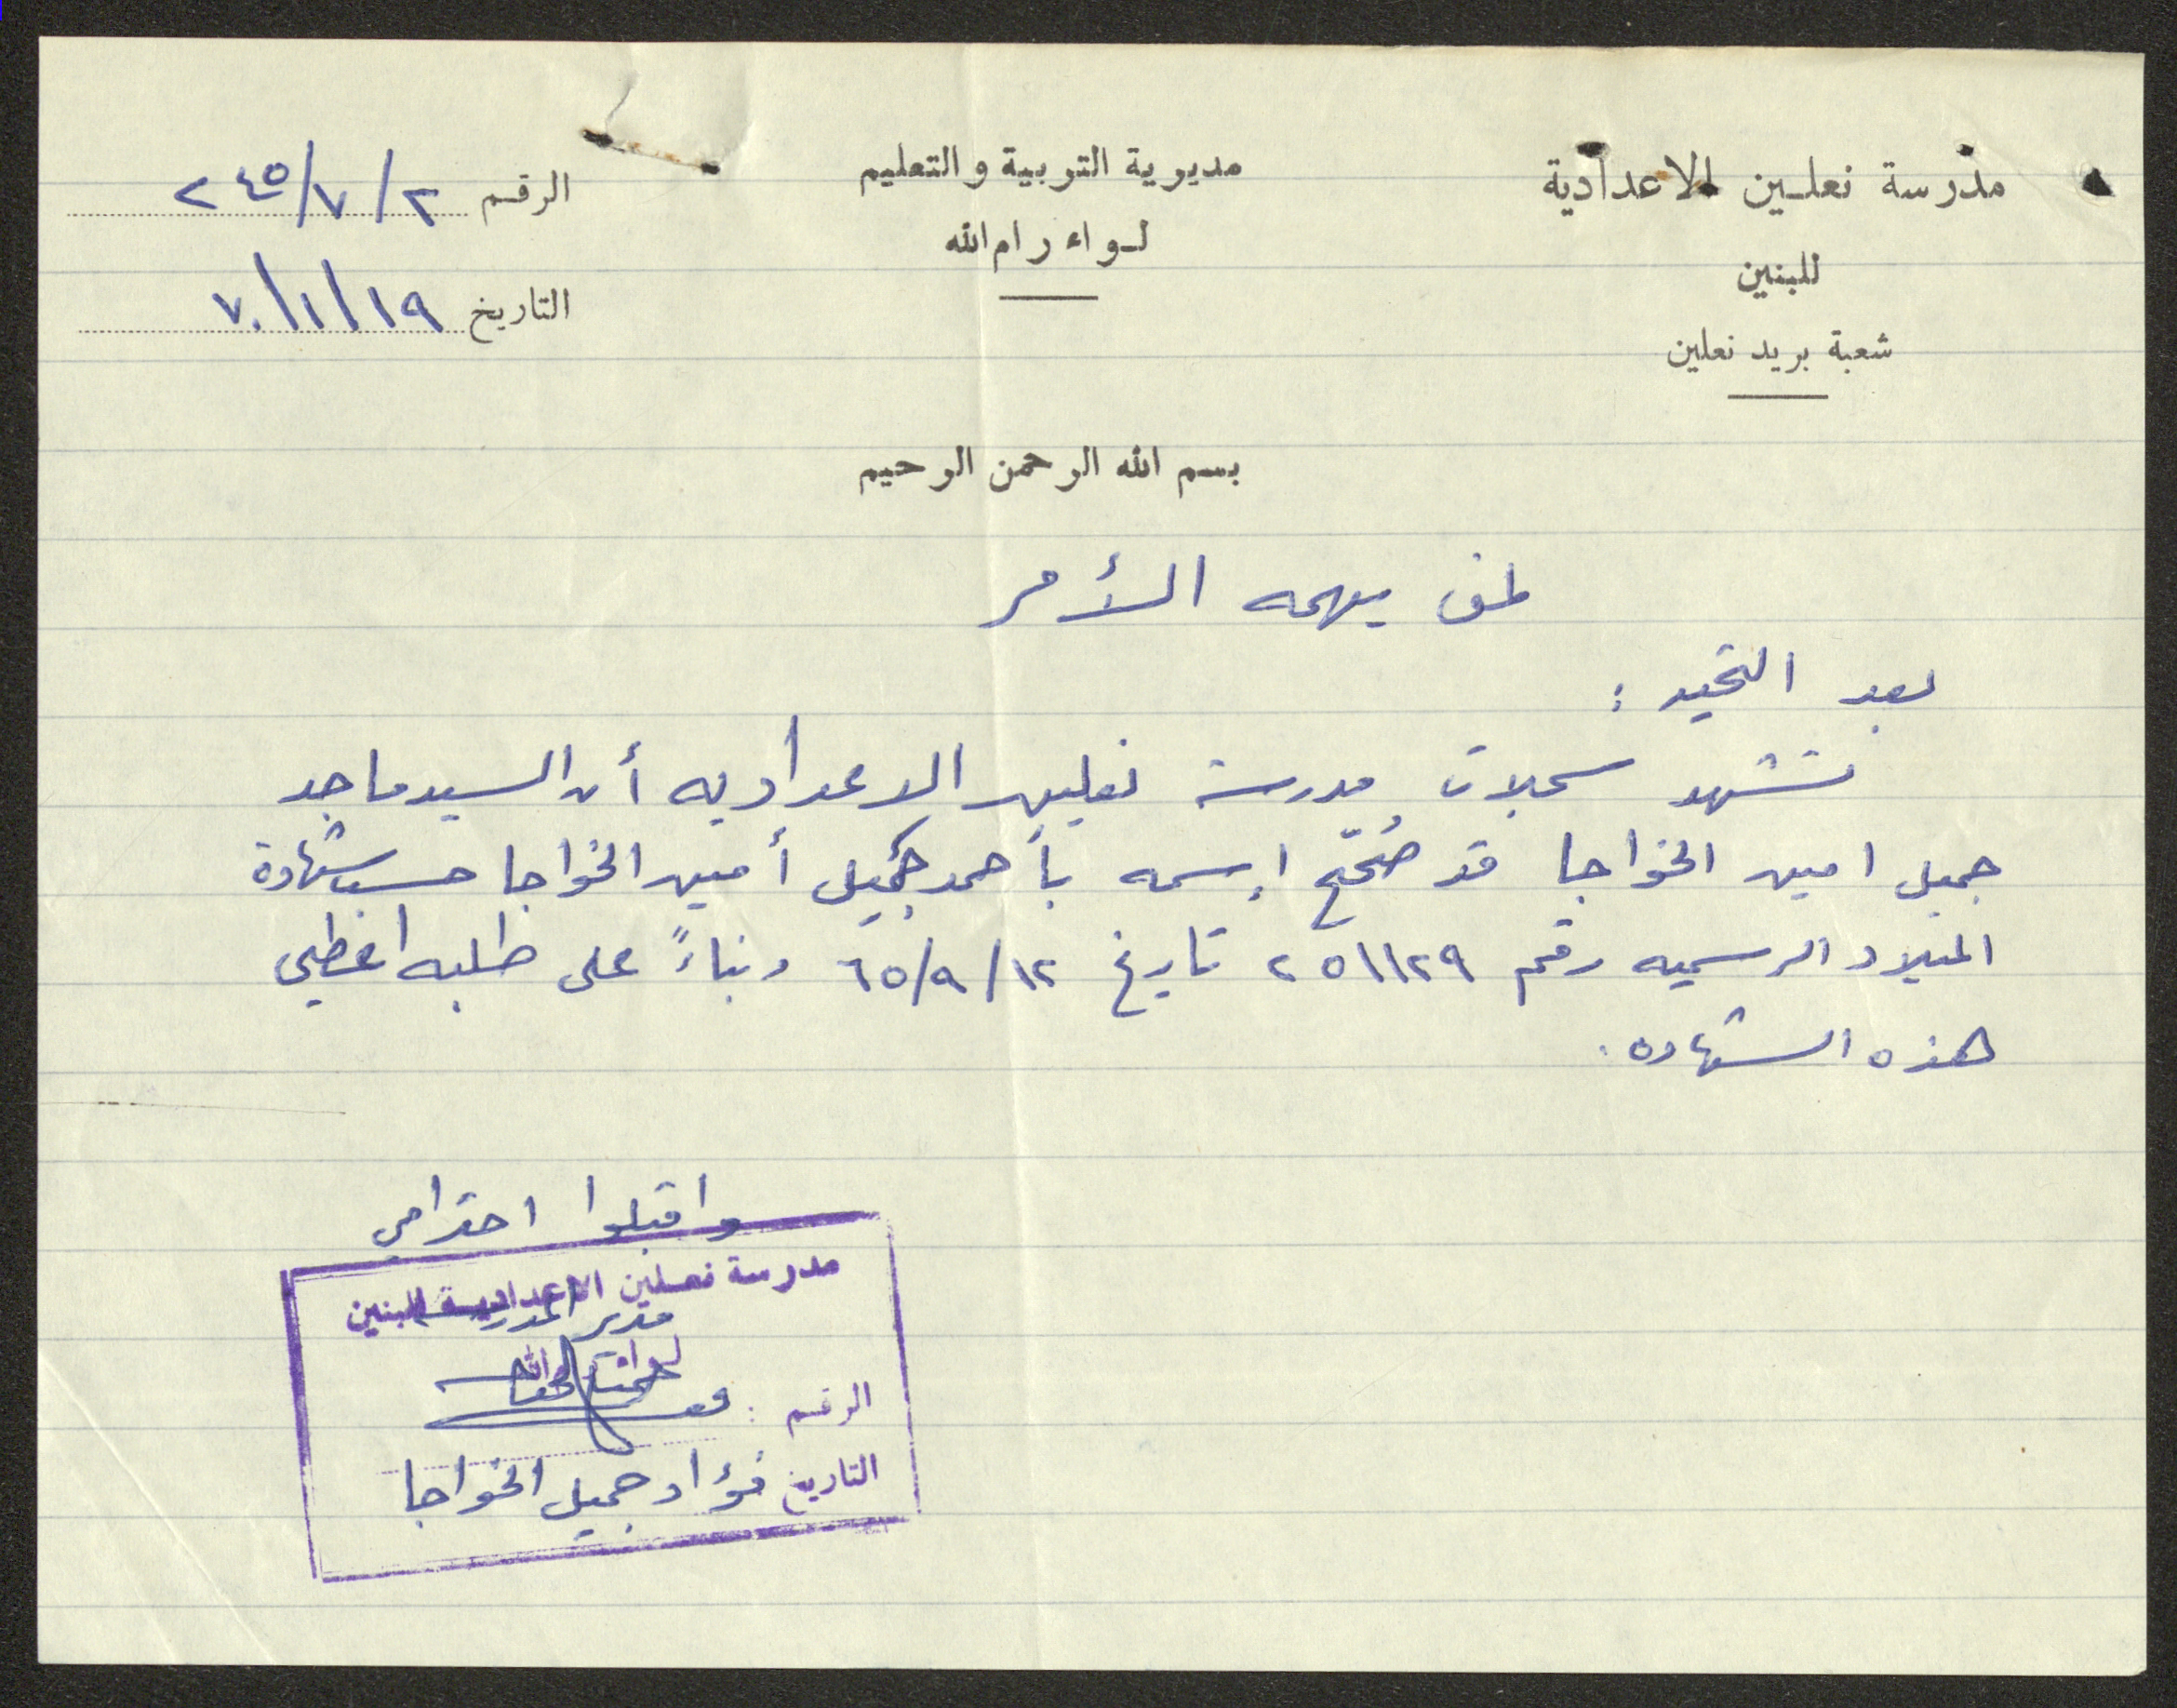 مدرسة نعلين الاعدادية
للبنين
شعبة بريد نعلين
مديرية التربية والتعليم
لواء رام الله
الرقم ٢/٧/٢٤٥
التاريخ ١٩/١/٧٠
بسم الله الرحمن الرحيم
لمن يهمه الأمر
بعد التحيه :
تشهد سجلات مدرسة نعلين الاعداديه أن السيد ماجد
جميل امين الخواجا قد صُحّح إسمه بأحمد جميل أمين الخواجا حسب شهادة
الميلاد الرسميه رقم ٢٥١١٢٩ تاريخ ١٢/٩/٦٥ وبناءً على طلبه اعطي
هذه الشهاده .
واقبلوا احترامي
مدرسة نعلين الاعدادية للبنين
مدير المدرسة
لواء رام الله
الرقم :
التاريخ
فؤاد جميل الخواجا